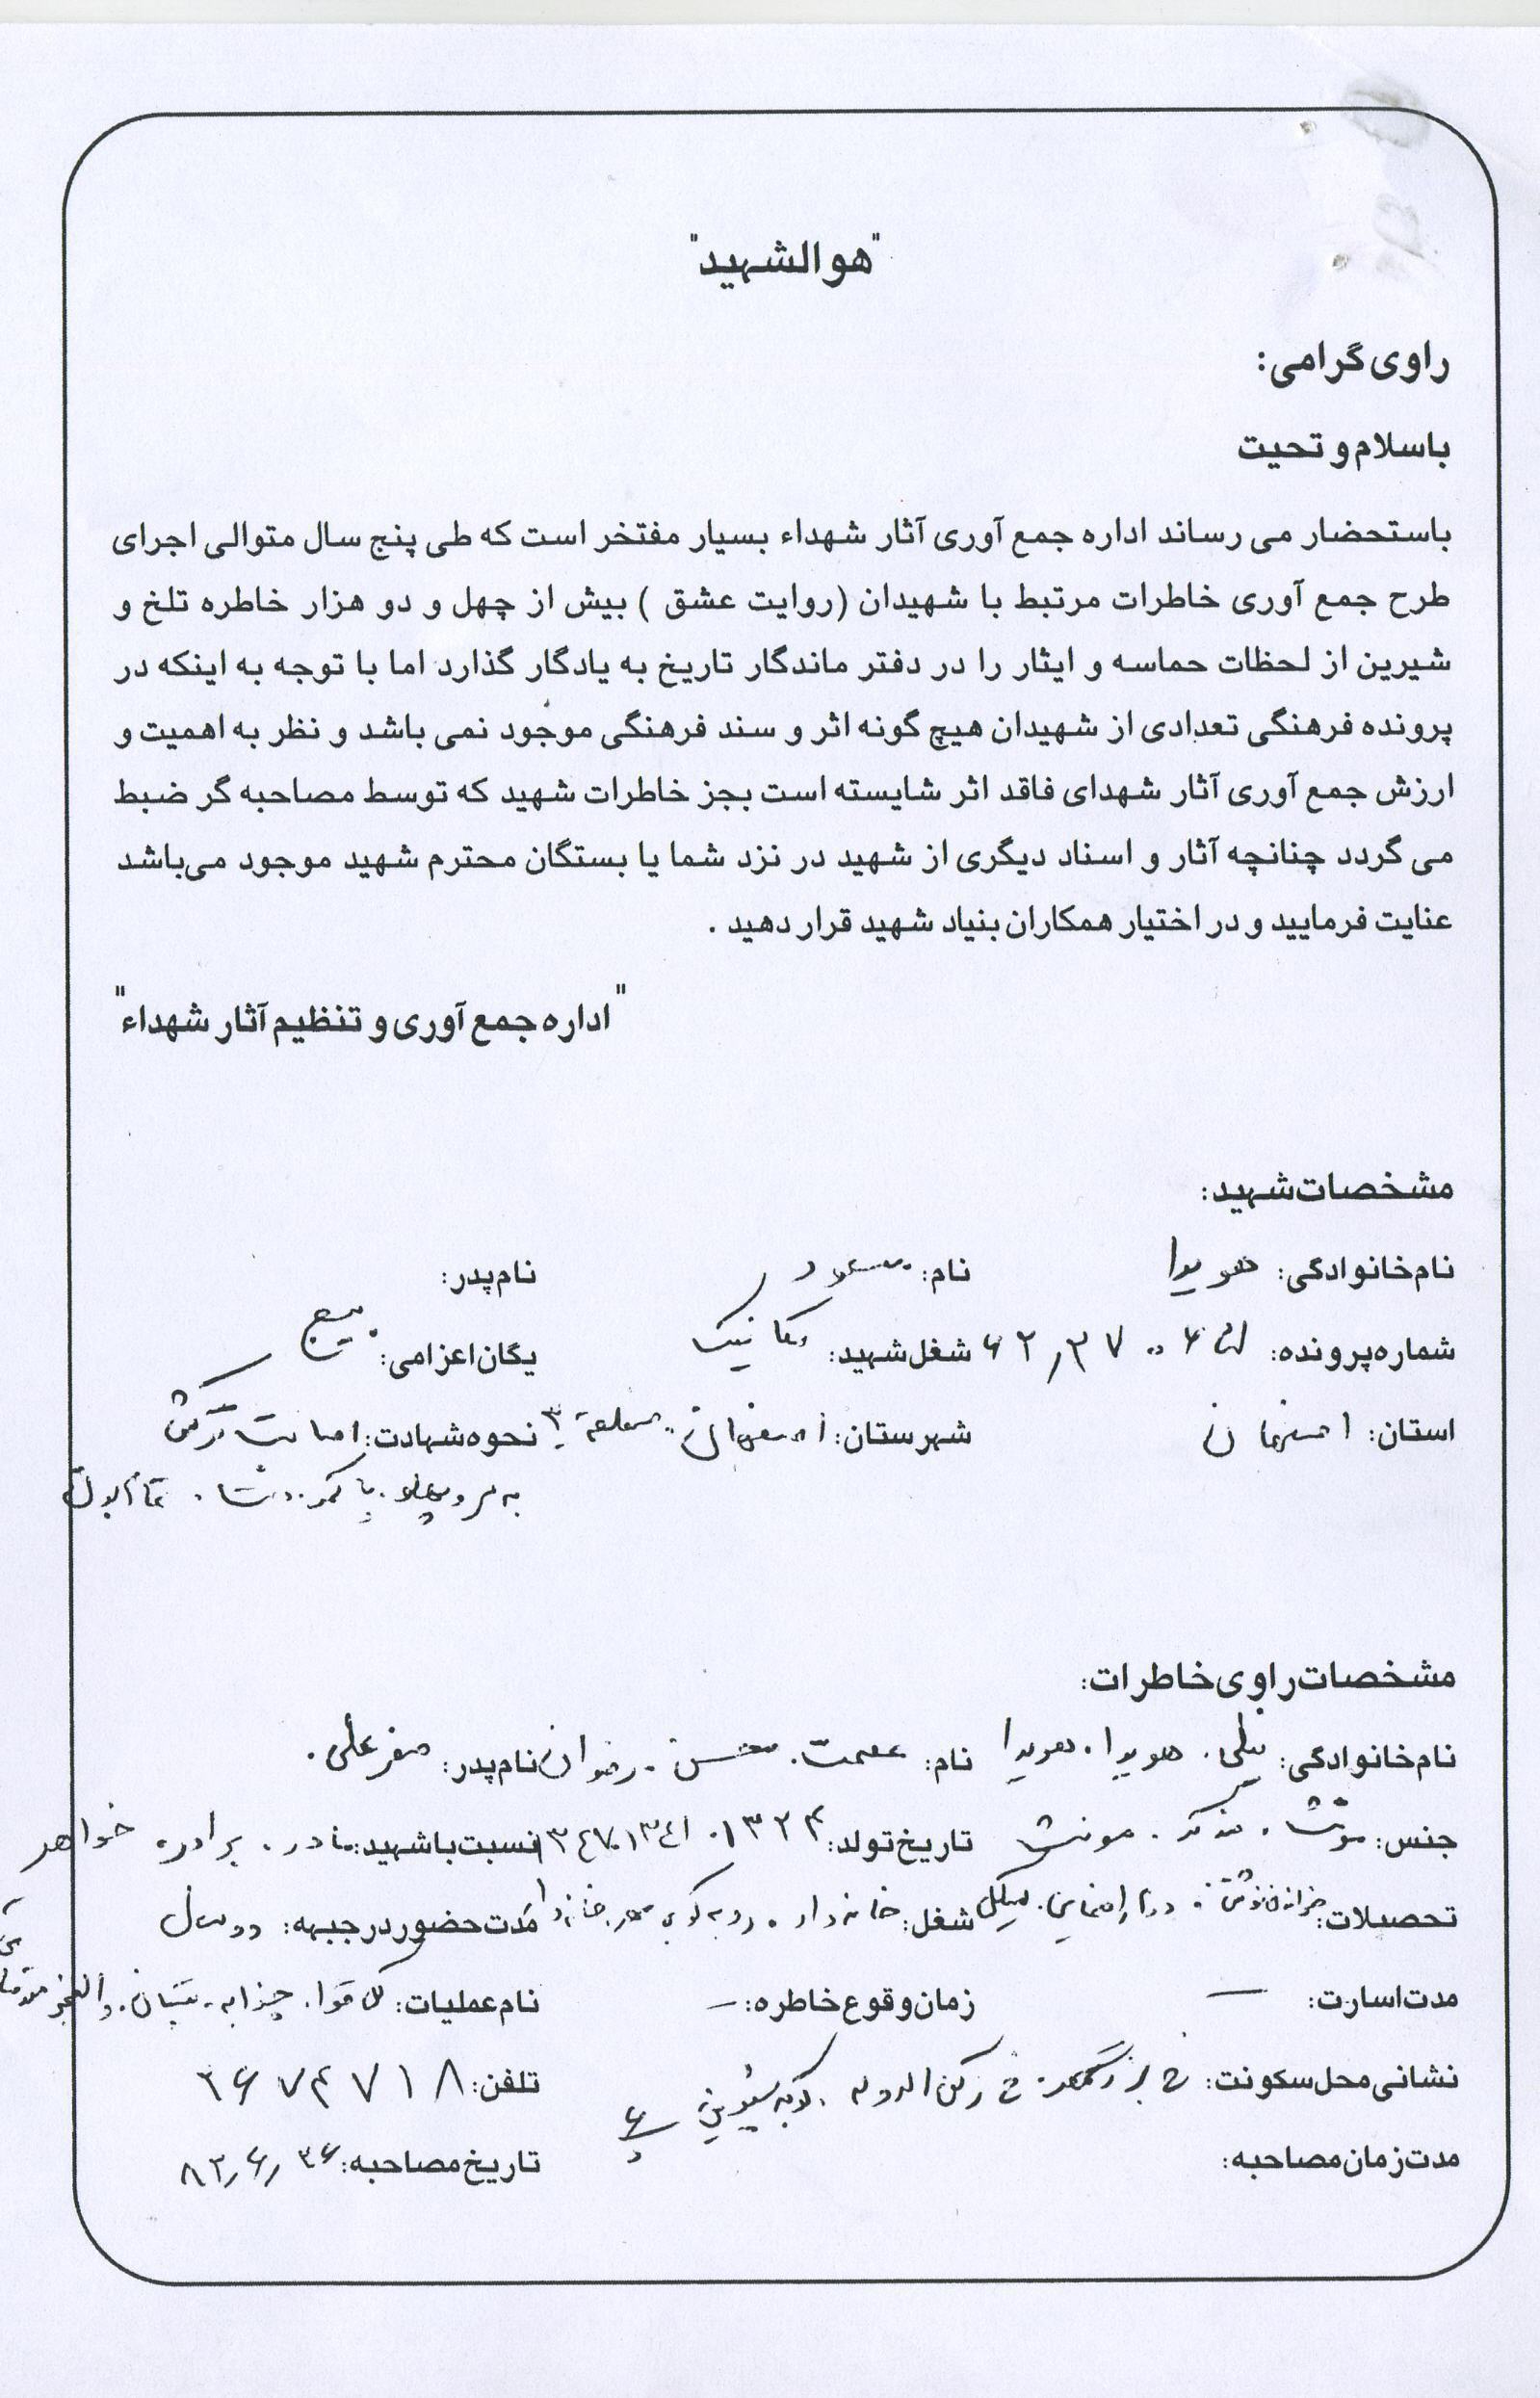 "هوالشهید"
راوی گرامی:
باسلام و تحیت
باستحضار می رساند اداره جمع آوری آثار شهداء بسیار مفتخر است که طی پنج سال متوالی اجرای
طرح جمع آوری خاطرات مرتبط با شهیدان (روایت عشق ) بیش از چهل و دو هزار خاطره تلخ و
شیرین از لحظات حماسه و ایثار را در دفتر ماندگار تاریخ به یادگار گذارد اما با توجه به اینکه در
پرونده فرهنگی تعدادی از شهیدان هیچ گونه اثر و سند فرهنگی موجود نمی باشد و نظر به اهمیت و
ارزش جمع آوری آثار شهدای فاقد اثر شایسته است بجز خاطرات شهید که توسط مصاحبه گر ضبط
می گردد چنانچه آثار و اسناد دیگری از شهید در نزد شما یا بستگان محترم شهید موجود می‌باشد
عنایت فرمایید و در اختیار همکاران بنیاد شهید قرار دهید .
"اداره جمع آوری و تنظیم آثار شهداء"
مشخصات شهید:
نام خانوادگی: هویدا نام: مسعود نام پدر:
شماره پرونده: شغل شهید: مکانیک یگان اعزامی: بسیج
استان: اصفهان شهرستان: اصفهان منطقه ۳ نحوه شهادت: اصابت ترکش
به سر و پهلو
مشخصات راوی خاطرات:
نام خانوادگی: هویدا. هویدا نام: عصمت. محسن. رضوان نام پدر: صفرعلی.
جنس: مونث. مذکر. مونث تاریخ تولد: ۱۳۲۴. ۱۳۴۱. ۱۳۴۷ نسبت باشهید: مادر. برادر. خواهر
تحصیلات: شغل: خانه دار. مدت حضور در جبهه: دو سال
مدت اسارت: — زمان وقوع خاطره: — نام عملیات: چزابه.
نشانی محل سکونت: خ بزرگمهر. خ رکن الدوله. تلفن: ۲۶۷۴۷۱۸
مدت زمان مصاحبه: تاریخ مصاحبه: